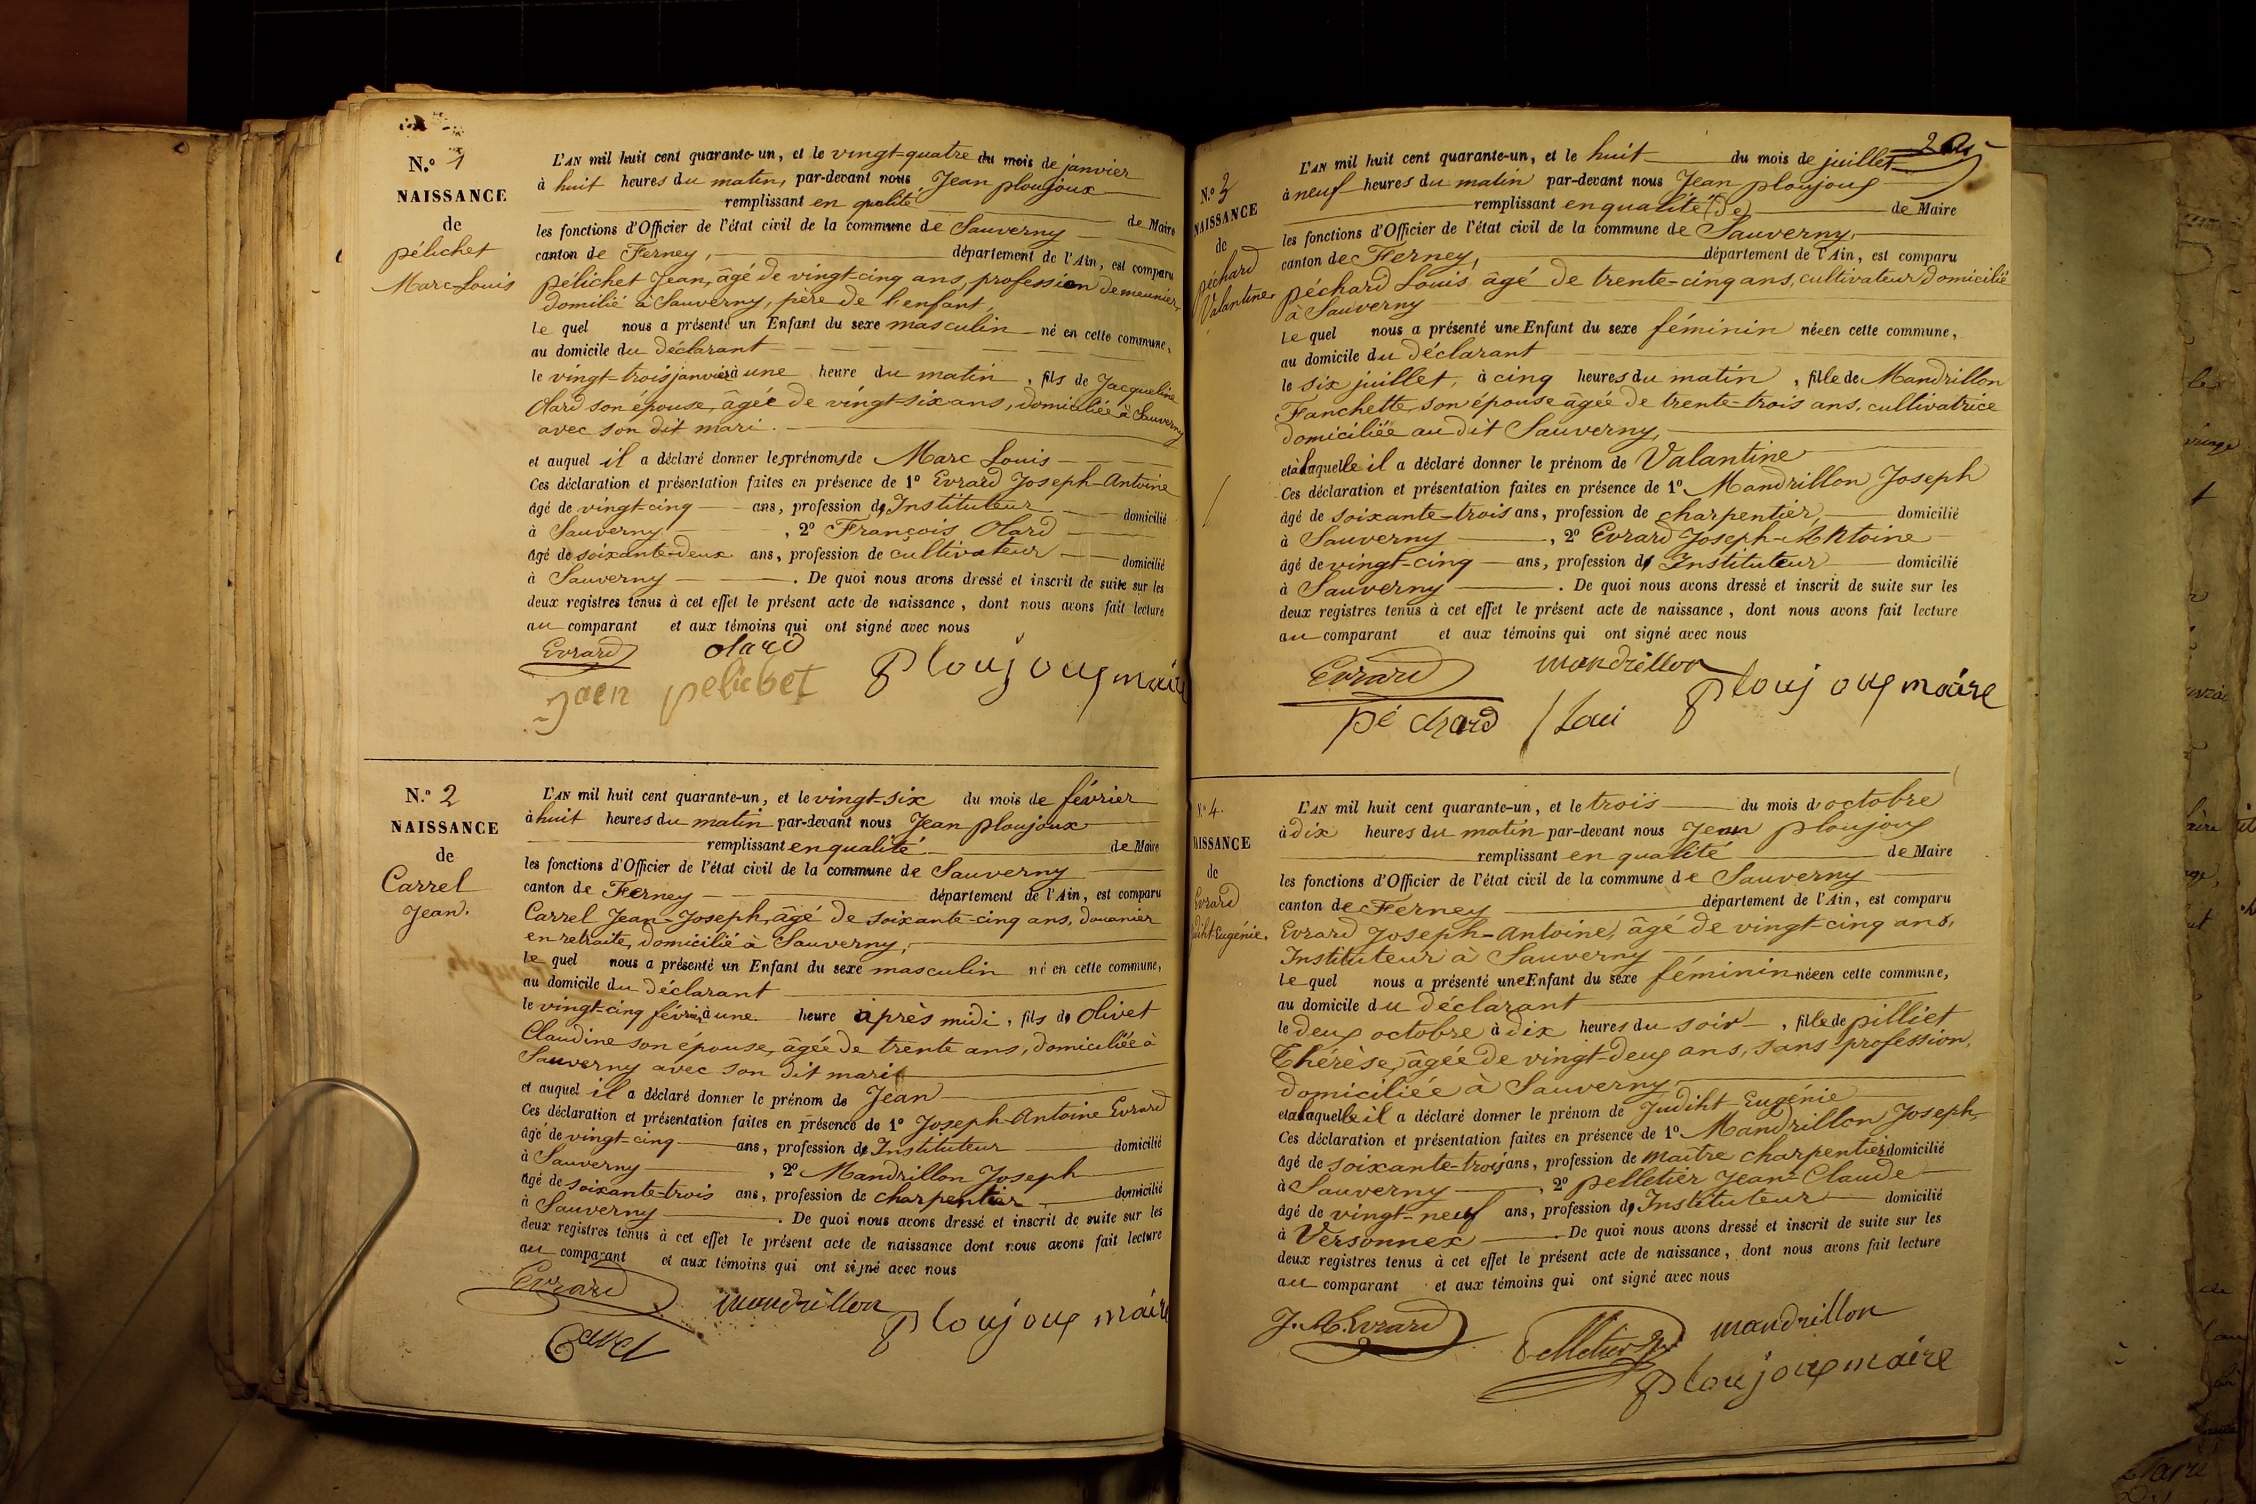 N.° 1
NAISSANCE
de
pélichet
Marc-Louis
L'AN mil huit cent quarante-un, et le vingt-quatre du mois de janvier
à huit heures du matin, par-devant nous Jean ploujoux
remplissant en qualité de Maire
les fonctions d'Officier de l'état civil de la commune de Sauverny
canton de Ferney, département de l'Ain, est comparu
pélichet Jean, âgé de vingt-cinq ans, profession de meunier,
domilié à Sauverny, père de l'enfant,
le quel nous a présenté un Enfant du sexe masculin né en cette commune,
au domicile du déclarant
le vingt-trois janvier à une heure du matin, fils de Jacqueline
Olard son épouse, âgée de vingt-six ans, domiciliée à Sauverny
avec son dit mari.
et auquel il a déclaré donner les prénoms de Marc Louis
Ces déclaration et présentation faites en présence de 1° Evrard Joseph-Antoine
âgé de vingt-cinq ans, profession d' Instituteur domicilié
à Sauverny, 2° François Olard
âgé de soixante-deux ans, profession de cultivateur domicilié
à Sauverny. De quoi nous avons dressé et inscrit de suite sur les
deux registres tenus à cet effet le présent acte de naissance, dont nous avons fait lecture
au comparant et aux témoins qui ont signé avec nous
Evrard olard
Jaen pelichet ploujoux maire
N.° 2
NAISSANCE
de
Carrel
Jean.
L'AN mil huit cent quarante-un, et le vingt-six du mois de février
à huit heures du matin par-devant nous Jean ploujoux
remplissant en qualité de Maire
les fonctions d'Officier de l'état civil de la commune de Sauverny
canton de Ferney département de l'Ain, est comparu
Carrel Jean-Joseph, âgé de soixante-cinq ans, douanier
en retraite, domicilié à Sauverny,
le quel nous a présenté un Enfant du sexe masculin né en cette commune,
au domicile du déclarant
le vingt-cinq février à une heure après midi, fils d' Olivet
Claudine son epouse, âgée de trente ans, domiciliée à
Sauverny avec son dit mari
et auquel il a déclaré donner le prénom de Jean
Ces déclaration et présentation faites en présence de 1° Joseph-Antoine Evrard
âgé de vingt-cinq ans, profession d' Instituteur domicilié
à Sauverny, 2° Mandrillon Joseph
âgé de soixante-trois ans, profession de charpentier domicilié
à Sauverny. De quoi nous avons dressé et inscrit de suite sur les
deux registres tenus à cet effet le présent acte de naissance dont nous avons fait lecture
au comparant et aux témoins qui ont signé avec nous
Evrard mandrillon ploujoux maire
Carrel
N.° 3
NAISSANCE
de
péchard
Valantine
L'AN mil huit cent quarante-un, et le huit du mois de juillet
à neuf heures du matin par-devant nous Jean ploujoux
remplissant en qualité (de) de Maire
les fonctions d'Officier de l'état civil de la commune de Sauverny,
canton de Ferney, département de l'Ain, est comparu
péchard Louis âgé de trente-cinq ans, cultivateur domicilié
à Sauverny
le quel nous a présenté une Enfant du sexe féminin née en cette commune,
au domicile du déclarant
le six juillet, à cinq heures du matin, fille de Mandrillon
Fanchette, son épouse âgée de trente-trois ans, cultivatrice
domiciliée au dit Sauverny,
et à laquelle il a déclaré donner le prénom de Valantine
Ces déclaration et présentation faites en présence de 1° Mandrillon Joseph
âgé de soixante-trois ans, profession de charpentier, domicilié
à Sauverny, 2° Evrard Joseph-Antoine
âgé de vingt-cinq ans, profession d' Instituteur domicilié
à Sauverny. De quoi nous avons dressé et inscrit de suite sur les
deux registres tenus à cet effet le présent acte de naissance, dont nous avons fait lecture
au comparant et aux témoins qui ont signé avec nous
Evrard mandrillon
péchard Loui ploujoux maire
N.° 4.
NAISSANCE
de
Evrard
Judiht-Eugénie.
L'AN mil huit cent quarante-un, et le trois du mois d'octobre
à dix heures du matin par-devant nous Jean ploujoux
remplissant en qualité de Maire
les fonctions d'Officier de l'état civil de la commune de Sauverny
canton de Ferney département de l'Ain, est comparu
Evrard Joseph-Antoine, âgé de vingt-cinq ans,
Instituteur à Sauverny
le quel nous a présenté une Enfant du sexe féminin née en cette commune,
au domicile du déclarant
le deux octobre à dix heures du soir, fille de pilliet
Thérèse, âgée de vingt-deux ans, sans profession,
domiciliée à Sauverny,
et à laquelle il a déclaré donner le prénom de Judiht-Eugénie
Ces déclaration et présentation faites en présence de 1° Mandrillon Joseph,
âgé de soixante-trois ans, profession de maitre charpentier domicilié
à Sauverny, 2° pelletier Jean-Claude
âgé de vingt-neuf ans, profession d' Instituteur domicilié
à Versonnex. De quoi nous avons dressé et inscrit de suite sur les
deux registres tenus à cet effet le présent acte de naissance, dont nous avons fait lecture
au comparant et aux témoins qui ont signé avec nous
J. A. Evrard Pelletier mandrillon
ploujoux maire